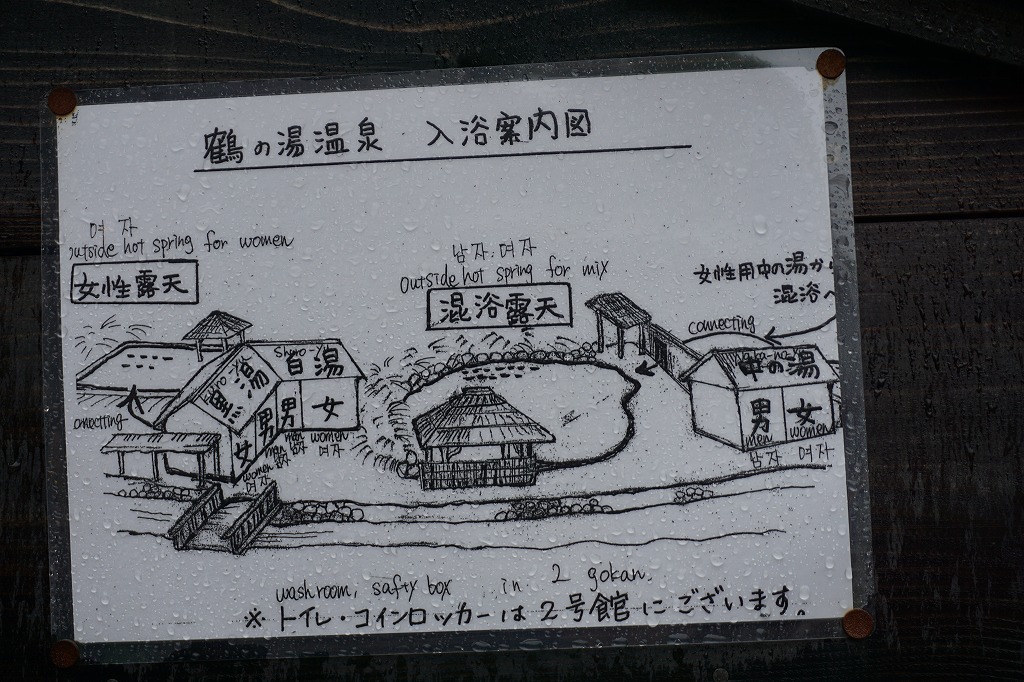 鶴の湯温泉 入浴案内図
여 자
outside hot spring for women
女性露天
남자.여자
Outside hot spring for mix
混浴露天
女性用中の湯から
混浴へ
connecting
白湯
黒湯
中の湯
男 女
男 女
男 女
men women
남자 여자
men women
남자 여자
men women
남자 여자
onnecting
washroom, safty box in 2 gokan.
※ トイレ・コインロッカーは2号館にございます。